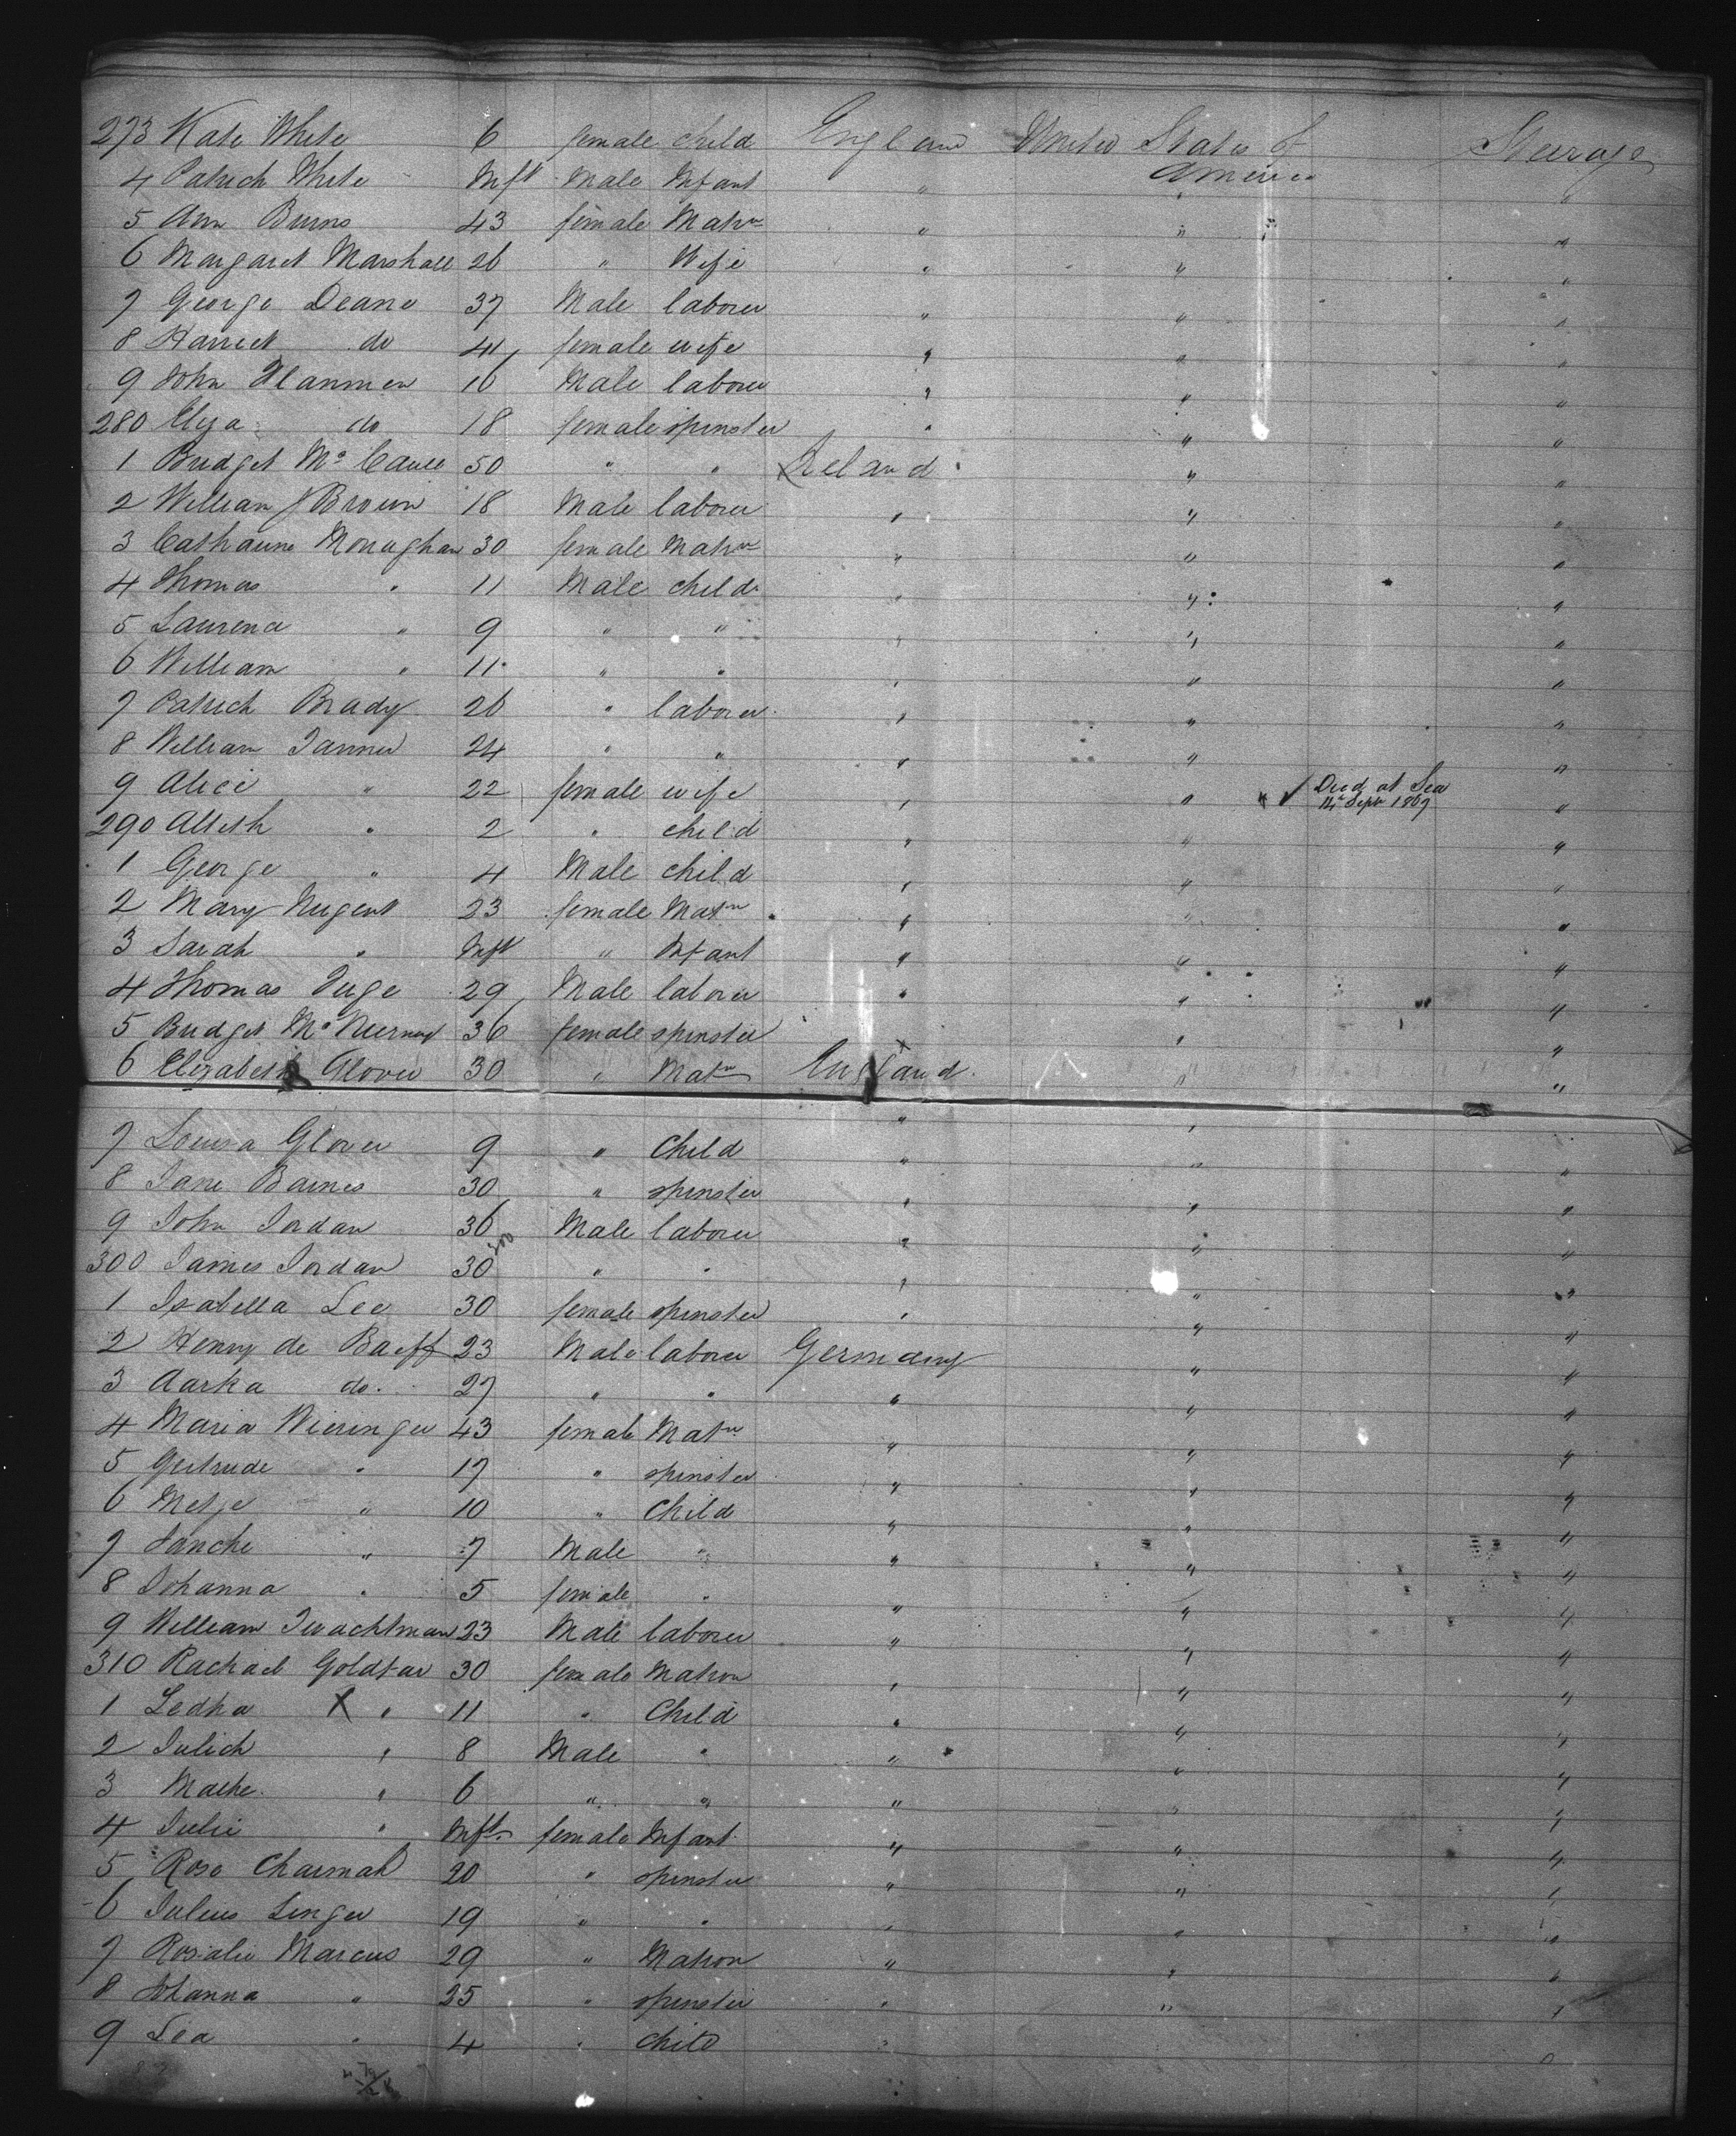 273 Kate White 6 female child England United States of America Steerage
4 Patrick White Inft Male Infant " " "
5 Ann Burns 43 female Matrn " " "
6 Margaret Marshall 26 " Wife " " "
7 George Deane 37 Male laborer " " "
8 Harriet do 41 female wife " " "
9 John 16 Male laborer " " "
280 Eliza do 18 female spinster " " "
1 Bridget Mc 50 " " Ireland " "
2 William J Brown 18 Male laborer " " "
3 Catharine Monaghan 30 female Matrn " " "
4 Thomas " 11 Male child " " "
5 Laurence " 9 " " " " "
6 William " 11 " " " " "
7 Patrick Brady 26 " laborer " " "
8 William Tanner 24 " " " " "
9 Alice " 22 female wife " " Died at Sea 14 Septr 1869 "
290 " 2 " child " " "
1 George " 4 Male child " " "
2 Mary Nugent 23 female Matrn " " "
3 Sarah " Inft " Infant " " "
4 Thomas 29 Male laborer " " "
5 Bridget Mc Nierney 36 female spinster " " "
6 Elizabeth Glover 30 " Matrn England " "
7 Louisa Glover 9 " Child " " "
8 Jane Barnes 30 " spinster " " "
9 John Jordan 36 Male laborer " " "
300 James Jordan 30 " " " " "
1 Isabella Lee 30 female spinster " " "
2 Henry de Baeff 23 Male laborer Germany " "
3 Aarka do. 27 " " " " "
4 Maria Wieringer 43 female Matrn " " "
5 Gertrude " 17 " spinster " " "
6 Metje " 10 " Child " " "
7 " 7 Male " " " "
8 Johanna " 5 female " " " "
9 William Twachtman 23 Male laborer " " "
310 Rachael Goldfar 30 female Matron " " "
1 Ledka X " 11 " Child " " "
2 Julich " 8 Male " " " "
3 " 6 " " " " "
4 Julie " Inft. female Infant " " "
5 Rose Charmak 20 " spinster " " "
6 Julius Linger 19 " " " " "
7 Rosalie Marcus 29 " Matron " " "
8 Johanna " 25 " spinster " " "
9 Lea " 4 " child " "